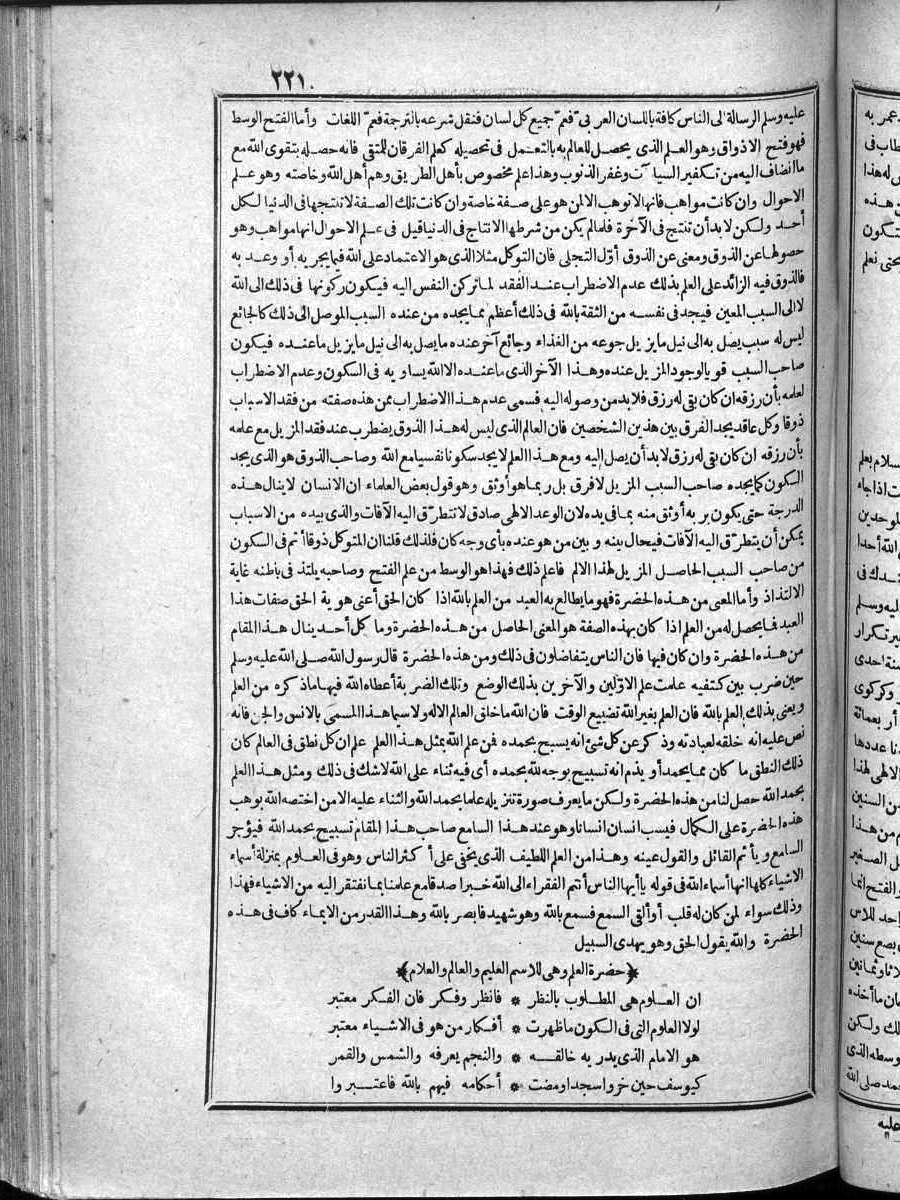 ٢٢١
عليه وسلم الرسالة الى الناس كافة باللسان العربى فعم جميع كل لسان فنقل شرعه بالترجة فعم اللغات وأما الفتح الوسط
فهو فتح الاذواق وهو العلم الذى يحصل للعالم به بالتعمل فى تحصيله كعلم الفرقان للمتقى فانه حصله بتقوى الله مع
ما انضاف اليه من تكفير السيآت وغفر الذنوب وهذا علم مخصوص بأهل الطريق وهم أهل الله وخاصته وهو علم
الاحوال وان كانت مواهب فانها لا توهب الا لمن هو على صفة خاصة وان كانت تلك الصفة لا تنتجها فى الدنيا لكل
أحد ولكن لابد أن تنتج فى الآخرة فلما لم يكن من شرطها الانتاج فى الدنيا قيل فى علم الاحوال انها مواهب وهو
حصولها عن الذوق ومعنى عن الذوق أوّل التجلى فان التوكل مثلا الذى هو الاعتماد على الله فيما يجريه أو وعد به
فالذوق فيه الزائد على العلم بذلك عدم الاضطراب عند الفقد لما تركن النفس اليه فيكون ركونها فى ذلك الى الله
لا الى السبب المعين فيجد فى نفسه من الثقة بالله فى ذلك أعظم مما يجده من عنده السبب الموصل الى ذلك كالجائع
ليس له سبب يصل به الى نيل ما يزيل جوعه من الغذاء وجائع آخر عنده ما يصل به الى نيل ما يزيل ما عنده فيكون
صاحب السبب قويا لوجود المزيل عنده وهذا الآخر الذى ما عنده الا الله يساويه فى السكون وعدم الاضطراب
لعلمه بأن رزقه ان كان بقى له رزق فلابد من وصوله اليه فسمى عدم هذا الاضطراب ممن هذه صفته من فقد الاسباب
ذوقا وكل عاقد يجد الفرق بين هذين الشخصين فان العالم الذى ليس له هذا الذوق يضطرب عند فقد المزيل مع علمه
بأن رزقه ان كان بقى له رزق لابد أن يصل اليه ومع هذا العلم لا يجد سكونا نفسيا مع الله وصاحب الذوق هو الذى يجد
السكون كما يجده صاحب السبب المزيل لا فرق بل ربما هو أوثق وهو قول بعض العلماء ان الانسان لا ينال هذه
الدرجة حتى يكون بربه أوثق منه بما فى يده لان الوعد الالهى صادق لا تتطرّق اليه الآفات والذى بيده من الاسباب
يمكن أن يتطرّق اليه الآفات فيحال بينه وبين من هو عنده بأى وجه كان فلذلك قلنا ان المتوكل ذوقا أتم فى السكون
من صاحب السبب الحاصل المزيل لهذا الالم فاعلم ذلك فهذا هو الوسط من علم الفتح وصاحبه يلتذ فى باطنه غاية
الالتذاذ وأما المعنى من هذه الحضرة فهو ما يطالع به العبد من العلم بالله اذا كان الحق أعنى هوية الحق صفات هذا
العبد فما يحصل له من العلم اذا كان بهذه الصفة هو المعنى الحاصل من هذه الحضرة وما كل أحد ينال هذا المقام
من هذه الحضرة وان كان فيها فان الناس يتفاضلون فى ذلك ومن هذه الحضرة قال رسول الله صلى الله عليه وسلم
حين ضرب بين كتفيه علمت علم الاوّلين والآخرين بذلك الوضع وتلك الضربة أعطاه الله فيها ما ذكره من العلم
ويعنى بذلك العلم بالله فان العلم بغير الله تضييع الوقت فان الله ما خلق العالم الا له ولا سيما هذا المسمى بالانس والجن فانه
نص عليه انه خلقه لعبادته وذكر عن كل شئ انه يسبح بحمده فمن علم الله بمثل هذا العلم علم ان كل نطق فى العالم كان
ذلك النطق ما كان مما يحمد أو يذم انه تسبيح بوجه لله بحمده أى فيه ثناء على الله لا شك فى ذلك ومثل هذا العلم
بحمد الله حصل لنا من هذه الحضرة ولكن ما يعرف صورة تنزيله علما بحمد الله والثناء عليه الا من اختصه الله بوهب
هذه الحضرة على الكمال فيسب انسان انسانا وهو عند هذا السامع صاحب هذا المقام تسبيح بحمد الله فيؤجر
السامع ويأثم القائل والقول عينه وهذا من العلم اللطيف الذى يخفى على أكثر الناس وهو فى العلوم بمنزلة أسماء
الاشياء كلها انها أسماء الله فى قوله يا أيها الناس أنتم الفقراء الى الله خبرا صدقا مع علمنا بما نفتقر اليه من الاشياء فهذا
وذلك سواء لمن كان له قلب أو ألقى السمع فسمع بالله وهو شهيد فابصر بالله وهذا القدر من الايماء كاف فى هذه
الحضرة والله يقول الحق وهو يهدى السبيل
﴿حضرة العلم وهى للاسم العليم والعالم والعلام﴾
ان العلوم هى المطلوب بالنظر * فانظر وفكر فان الفكر معتبر
لولا العلوم التى فى الكون ما ظهرت * أفكار من هو فى الاشياء معتبر
هو الامام الذى يدريه خالقه * والنجم يعرفه والشمس والقمر
كيوسف حين خروا سجدا ومضت * أحكامه فيهم بالله فاعتبروا